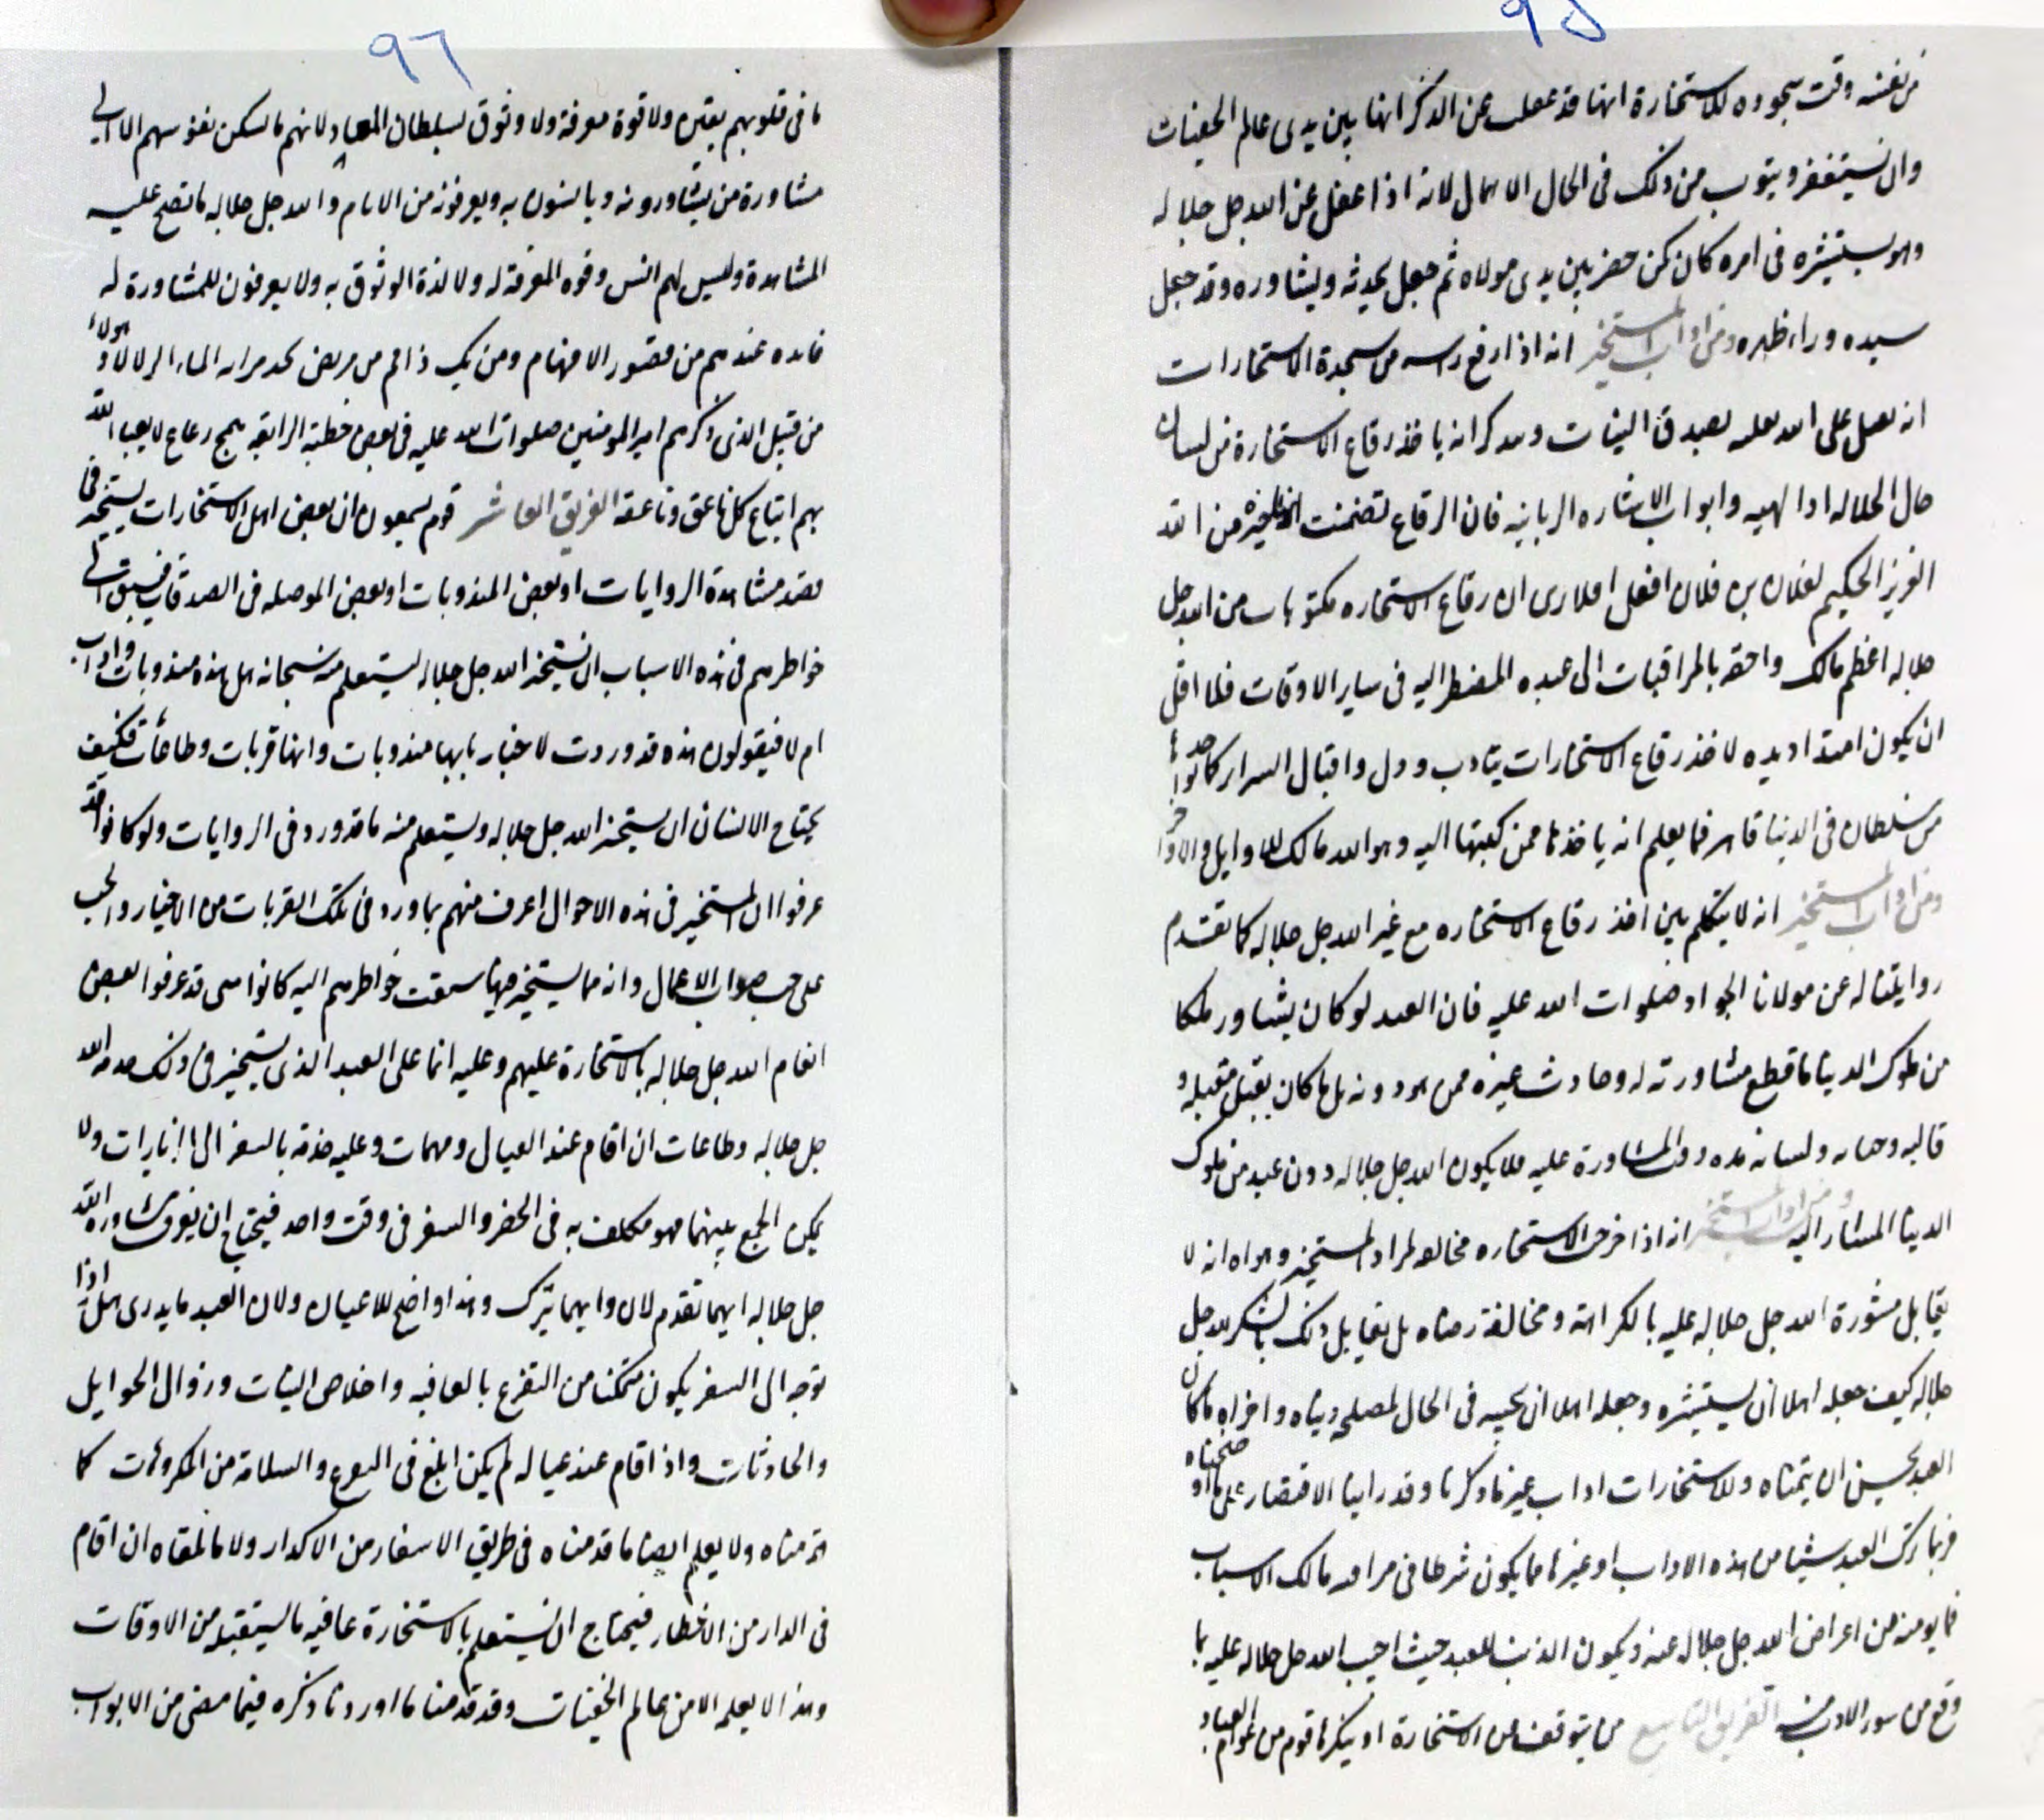 ٩٥
من نفسه وقت سجوده للاستخارة انها قد غفلت عن الذكر انها بين يدى عالم الخفيات
وان يستغفر ويتوب من ذلك فى الحال الاهمال لانه اذا غفل عن الله جل جلاله
وهو يستشيره فى امره كان كمن حضر بين يدى مولاه ثم جعل يحدثه ويشاوره وقد جعل
سيده وراء ظهره ومن اداب المستخير انه اذا رفع راسه من سجدة الاستخارات
انه على الله بصدق النيات انه ياخذ رقاع الاستخارة من لسان
حال الجلاله الالهيه وابواب الاشاره الربانيه فان الرقاع تضمنت انها خيرة من الله
العزيز الحكيم لفلان بن فلان افعل ارى ان رقاع الاستخاره مكتوبات من الله جل
جلاله اعظم مالك واحقه بالمراقبات الى عبده المضطر اليه فى ساير الاوقات فلا اقل
ان يكون امتداد يده لاخذ رقاع الاستخارات بتادب وذل واقبال
من سلطان فى الدنيا قاهر فما يعلم انه ياخذها ممن كتبها اليه وهو الله مالك الاوايل والاواخر
ومن اداب المستخير انه لا يتكلم بين اخذ رقاع الاستخاره مع غير الله جل جلاله كما تقدم
روايتنا له عن مولانا الجواد صلوات الله عليه فان العبد لو كان يشاور ملكا
من ملوك الدنيا ما قطع مشاورته له وحادث غيره ممن هو دونه بل ما كان يقبل مقبله و
قالبه ولسانه مده وقت المشاورة عليه فلا يكون الله جل جلاله دون عبد من ملوك
الدنيا المشار اليه ومن اداب المستخير انه اذا خرجت الاستخاره مخالفه لمراد المستخير وهواه انه لا
يقابل مشورة الله جل جلاله عليه بالكراهة ومخالفة رضاه بل يقابل ذلك بالشكر لله جل
جلاله كيف جعله اهلا ان يستشيره وجعله اهلا ان يجيبه فى الحال لمصلحه دنياه واخراه ما كان
العبد يحسن ان يتمناه وللاستخارات اداب غير ما ذكرنا وقد راينا الاقتصار على ما اوضحناه
فربما ترك العبد شيئا من هذه الاداب او غيرها مما يكون شرطا فى مراقبه مالك الاسباب
فما يومنه من اعراض الله جل جلاله عنه ويكون الذنب للعبد حيث احيب الله جل جلاله عليه بما
وقع من سور الادب منه الفريق التاسع من يتوقف عن الاستخارة او ينكرها قوم من عوام العباد
٩٦
ما فى قلوبهم يقين ولا قوة معرفة ولا وثوق لسلطان المعاد لانهم ما تسكن نفوسهم الا الى
مشاورة من يشاورونه ويانسون به ويعرفونه من الانام والله جل جلاله ما تصح عليه
المشاهدة وليس لهم انس وقوه المعرفة له ولا لذة الوثوق به ولا يعرفون للمشاورة له
فايده عندهم من قصور الافهام ومن يك ذا فم مر مريض يجد مرا به الماء الزلالا وهولاء
من قبيل الذى ذكرهم امير المومنين صلوات الله عليه فى بعض خطبته الرايقه همج رعاع لا يعبا الله
بهم اتباع كل ناعق وناعقه الفريق العاشر قوم يسمعون ان بعض اهل الاستخارات يستخير فى
قصد مشاهدة الروايات او بعض المندوبات او بعض الموصله فى الصدقات فيسبق الى
خواطرهم فى هذه الاسباب ان يستخير الله جل جلاله ليستعلم منه سبحانه هل هذه مندوبات واداب
ام لا فيقولون هذه قد وردت الاخبار بانها مندوبات وانها قربات وطاعات فكيف
يحتاج الانسان ان يستخير الله جل جلاله ويستعلم منه ما قد ورد فى الروايات ولو كانوا قد
عرفوا ان المستخير فى هذه الاحوال اعرف منهم بما ورد فى تلك القربات من الاخبار والحث
على صواب الاعمال وانه ما يستخير فيما سبقت خواطرهم اليه كانوا قد عرفوا بعض
انعام الله جل جلاله بالاستخارة عليهم وعليه انما على العبد الذى يستخير فى ذلك خدمه الله
جل جلاله وطاعات ان اقام عند العيال ومهمات وعليه خدمة بالسفر الى الزيارات ولا
يمكن الجمع بينهما فهو مكلف به فى الحضر والسفر فى وقت واحد فيحتاج ان يعرف بمشاوره الله
جل جلاله ايهما تقدم الان وايهما يترك وهذا واضح للاعيان ولان العبد ما يدرى هل اذا
توجه الى السفر يكون متمكنا من التفرغ بالعافيه واخلاص النيات وزوال الحوايل
والحادثات واذا اقام عند عياله لم يكن ابلغ فى والسلامة من المكروهات كما
قدمناه ولا يعلم ايضا ما قدمناه فى طريق الاسفار من الاكدار ولا ما يلقاه ان اقام
فى الدار من الاخطار فيحتاج ان يستعلم بالاستخارة عافيه ما يستقبله من الاوقات
وهذا لا يعلمه الا من عالم الخفيات وقد قدمنا ما اوردنا ذكره فيما مضى من الابواب